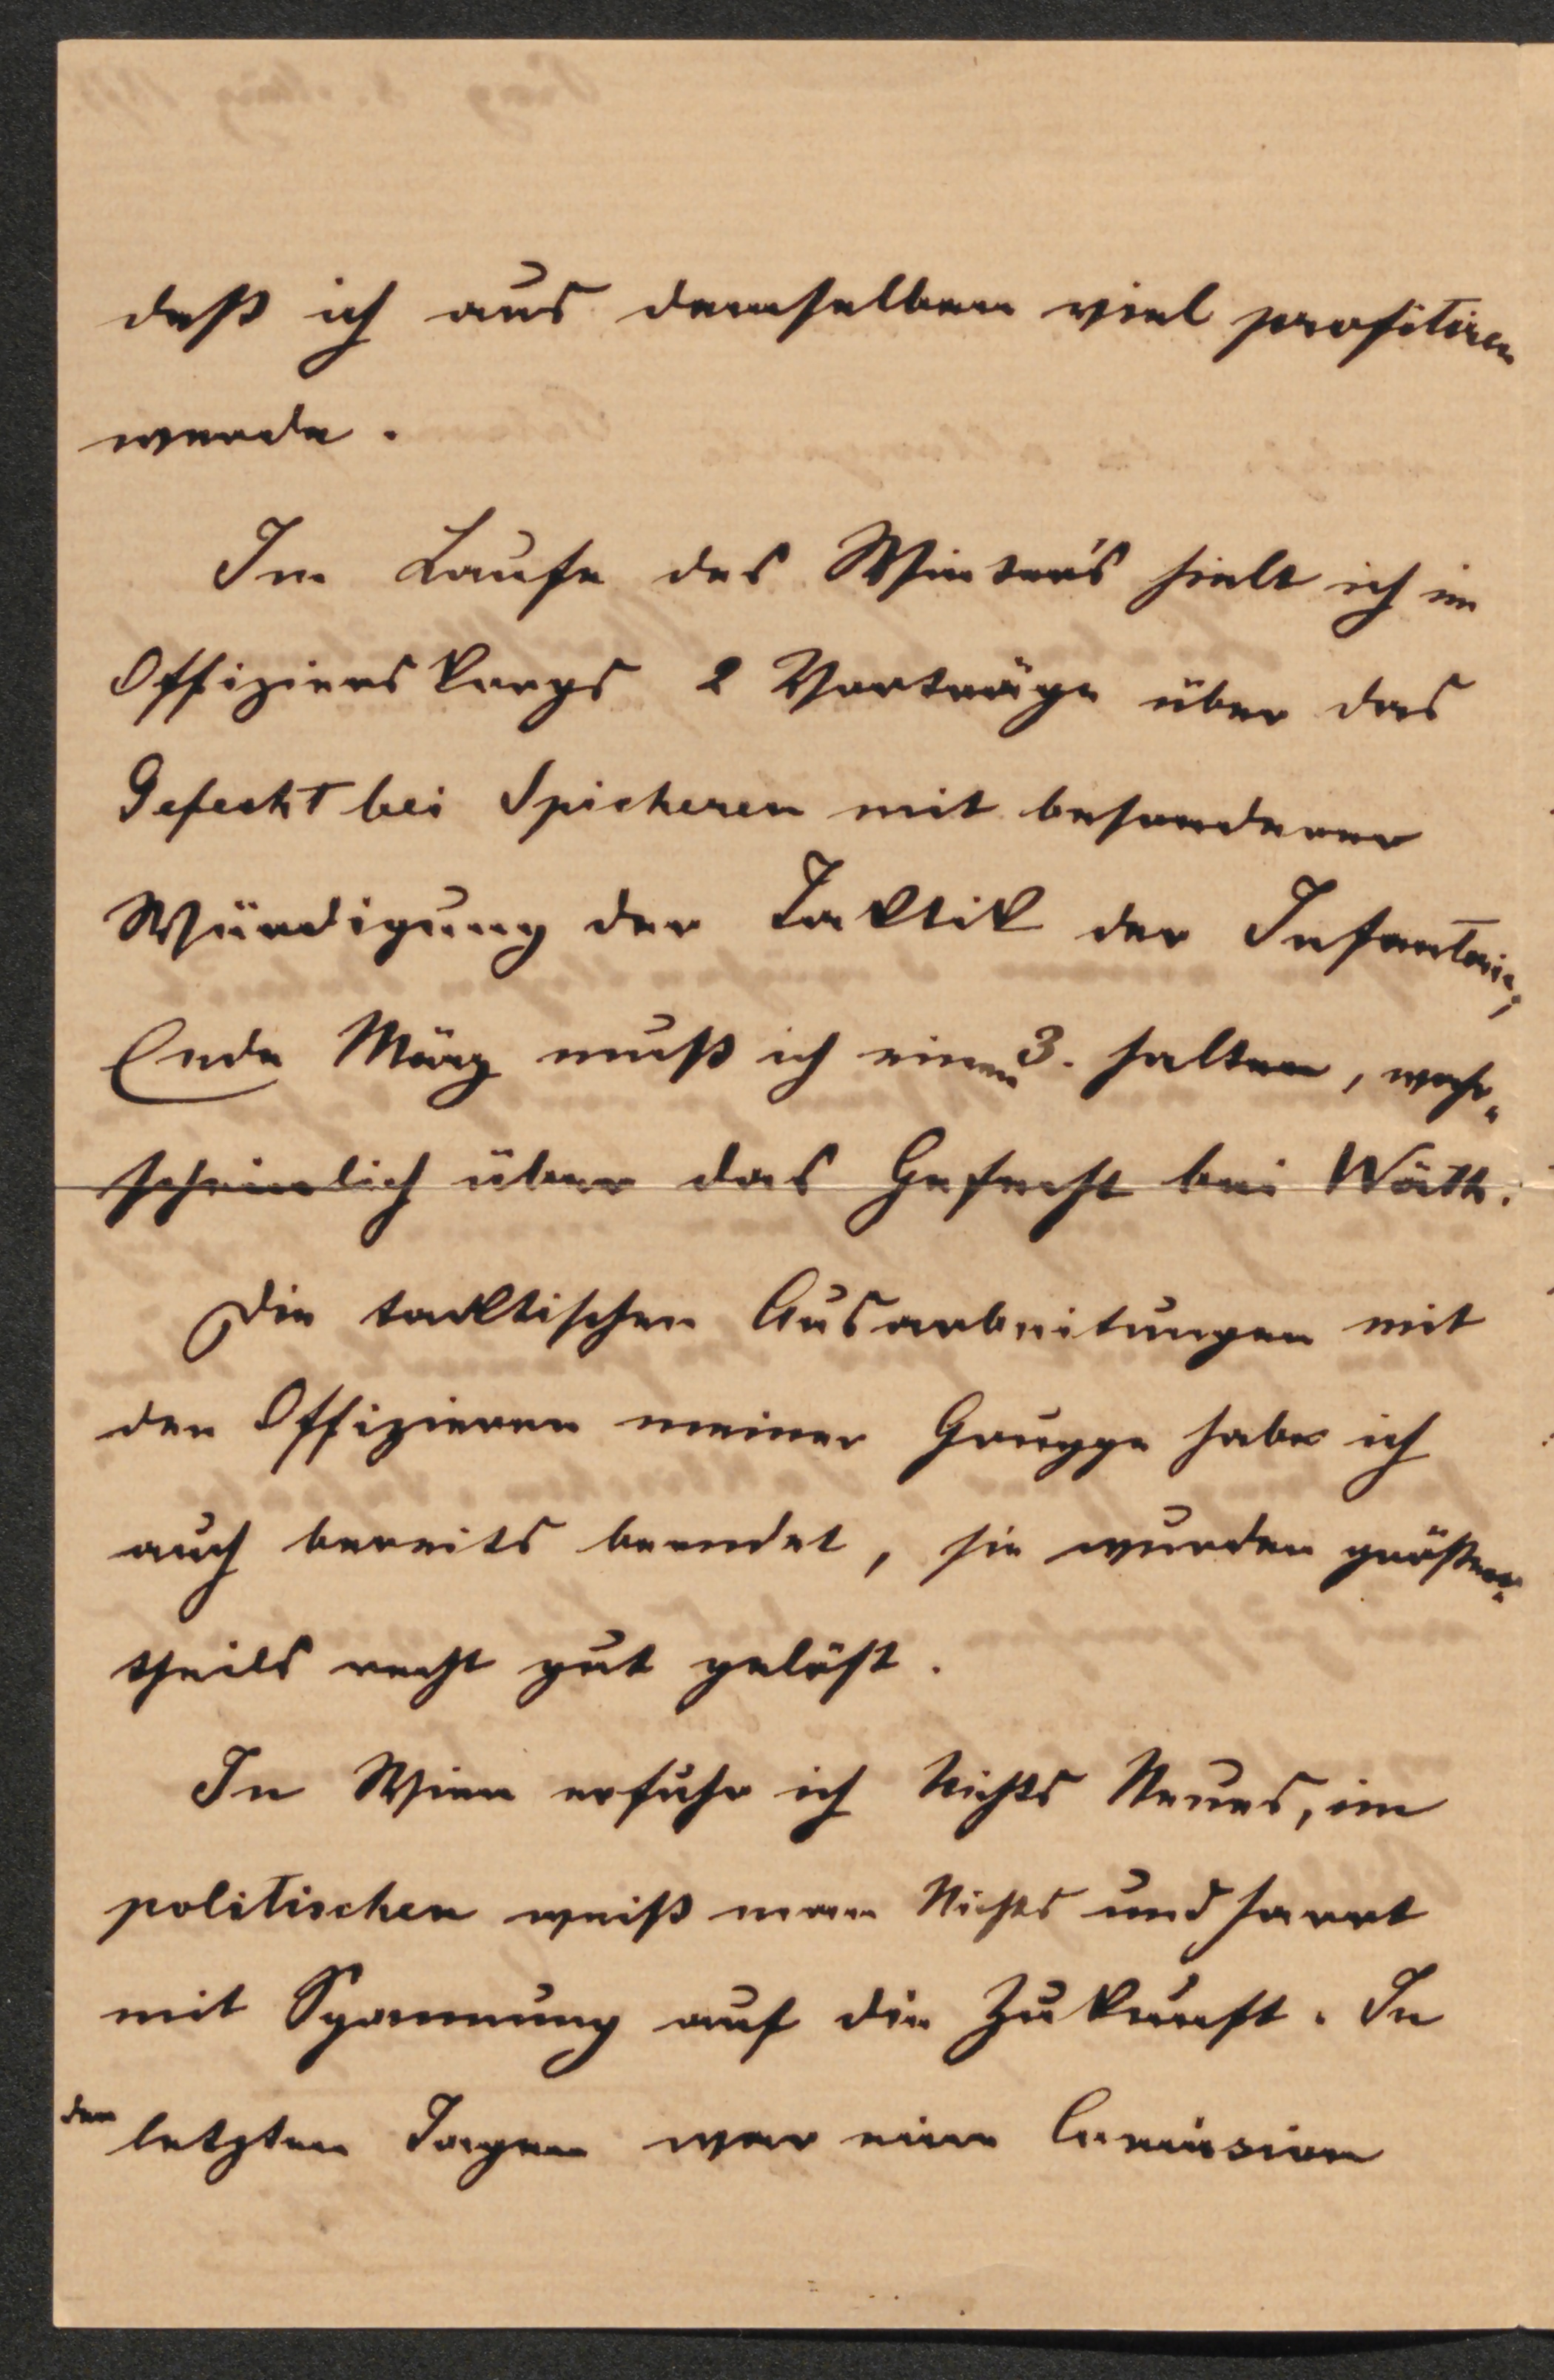 daß ich aus demselben viel profitiren
werde.
Im Laufe des Winter's hielt ich im
Offizierskorps 2 Vorträge über das
Gefecht bei Spicheren mit besonderer
Würdigung der Taktik der Infanterie,
Ende März muß ich einen 3. halten, wahr„
scheinlich über das Gefecht bei Wörth.
Die tacktischen Ausarbeitungen mit
den Offizieren meiner Gruppe habe ich
auch bereits beendet, sie wurden größten„
theils recht gut gelöst.
In Wien erfuhr ich Nichts Neues, im
politischen weiß man Nichts und harrt
mit Spannung auf die Zukunft. In
den letzten Tagen war eine